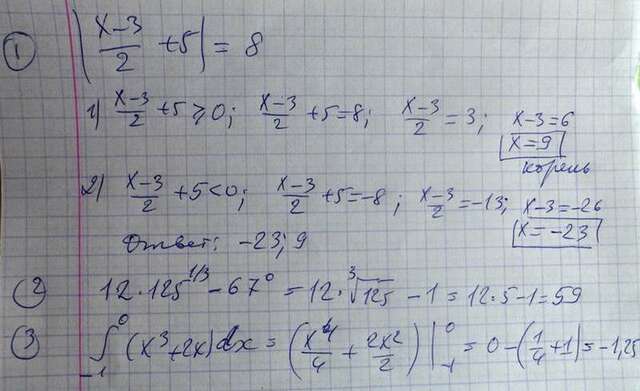 ① |(x-3)/2 + 5| = 8
1) (x-3)/2 + 5 ⩾ 0; (x-3)/2 + 5 = 8; (x-3)/2 = 3; x-3=6
x=9
корень
2) (x-3)/2 + 5 < 0; (x-3)/2 + 5 = -8; (x-3)/2 = -13; x-3=-26
x=-23
Ответ: -23; 9
② 12·125^(1/3) - 67⁰ = 12·∛125 - 1 = 12·5-1=59
③ ∫₋₁⁰ (x³+2x)dx = (x⁴/4 + 2x²/2)|₋₁⁰ = 0-(1/4+1)=-1,25